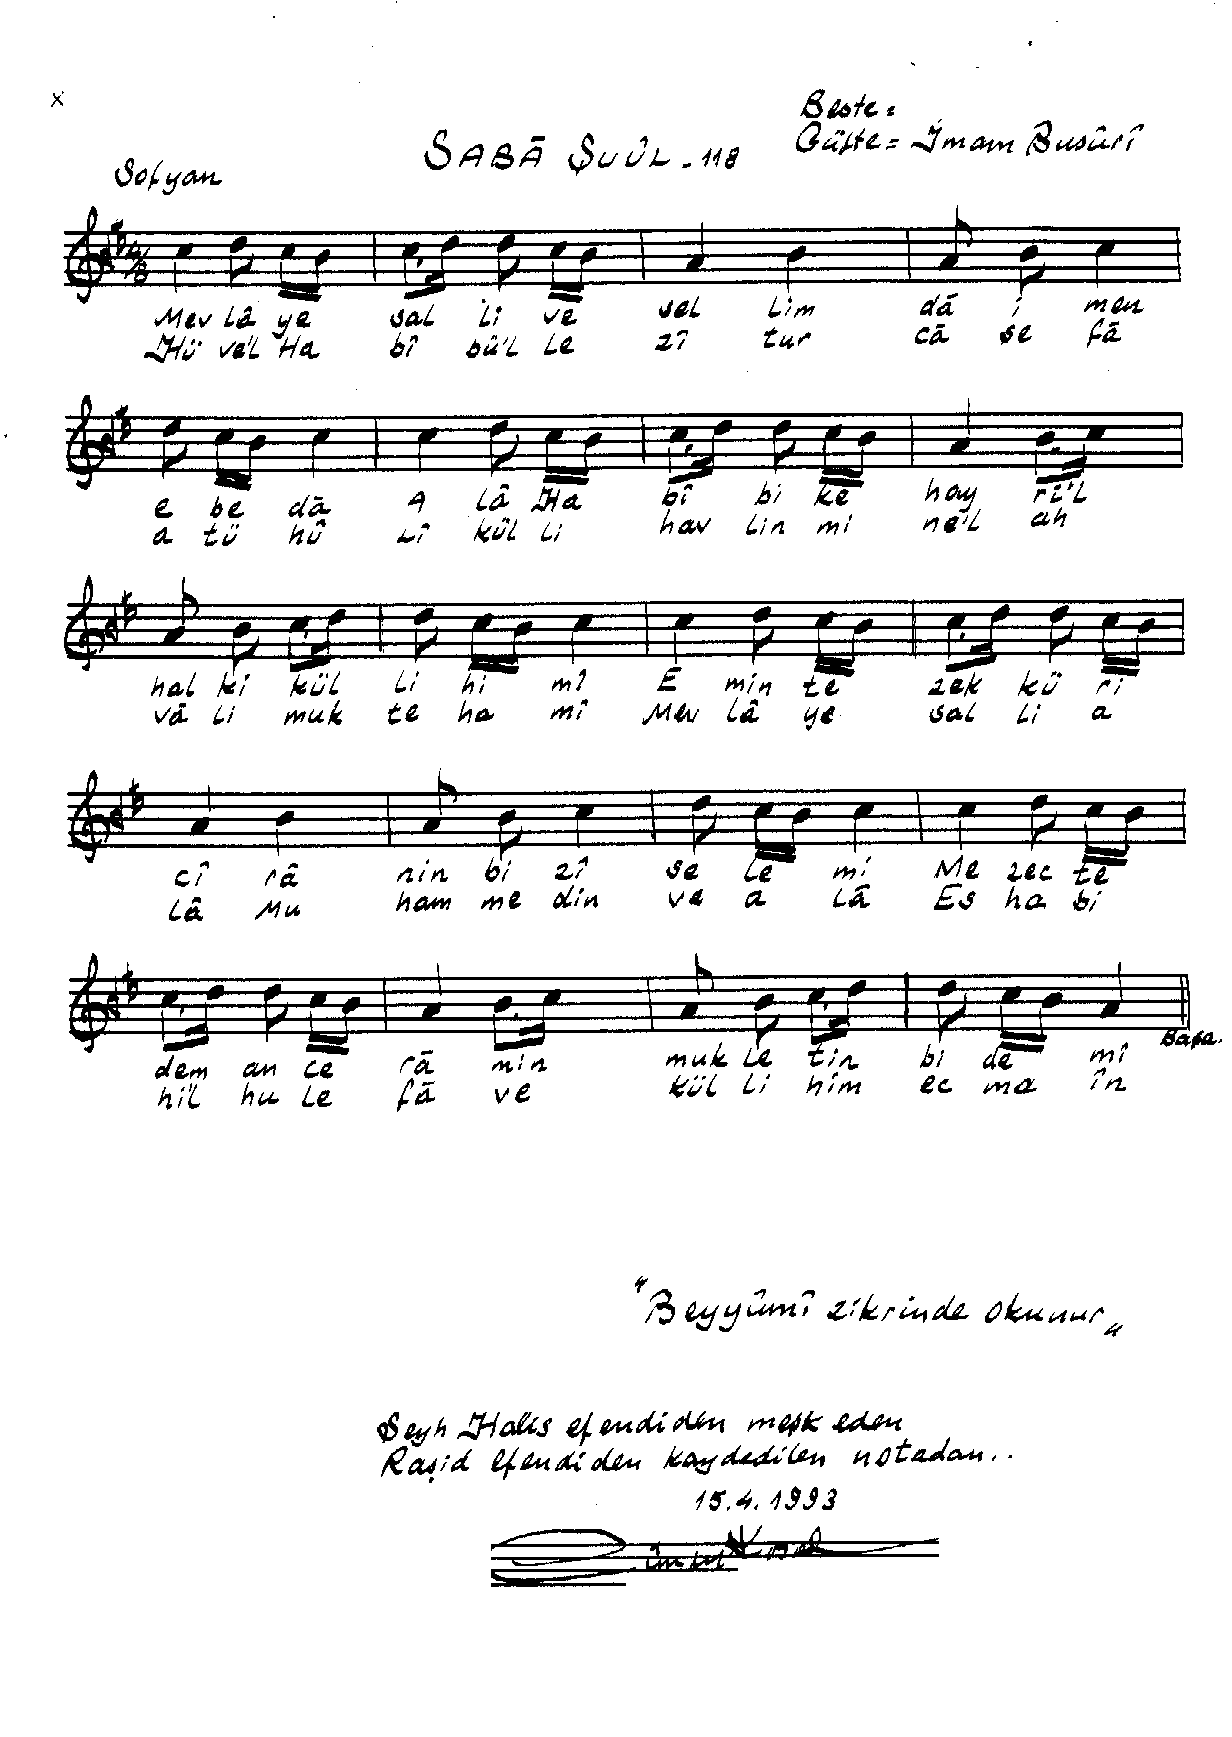 x
Beste=
SABĀ ŞUÛL - 118
Güfte= İmam Busûrî
Sofyan
Mev lâ ye sal li ve sel lim dā i men
Hü ve'l Ha bî bü'l le zî tur cā se fā
e be dā A lâ Ha bî bi ke hay ri'l
a tü hû Lî kül li hav lin mi ne'l ah
hal ki kül li hi mî E min te zek kü ri
vā li muk te ha mî Mev lâ ye sal li a
cî râ nin bi zî se le mi Me zec te
lâ Mu ham me din ve a lâ Es ha bi
dem an ce rā min muk le tin bi de mî
hi'l hu le fā ve kül li him ec ma în
Başa.
"Beyyûmî zikrinde okunur"
Şeyh Halis efendiden meşk eden
Raşid efendiden kaydedilen notadan..
15.4.1993